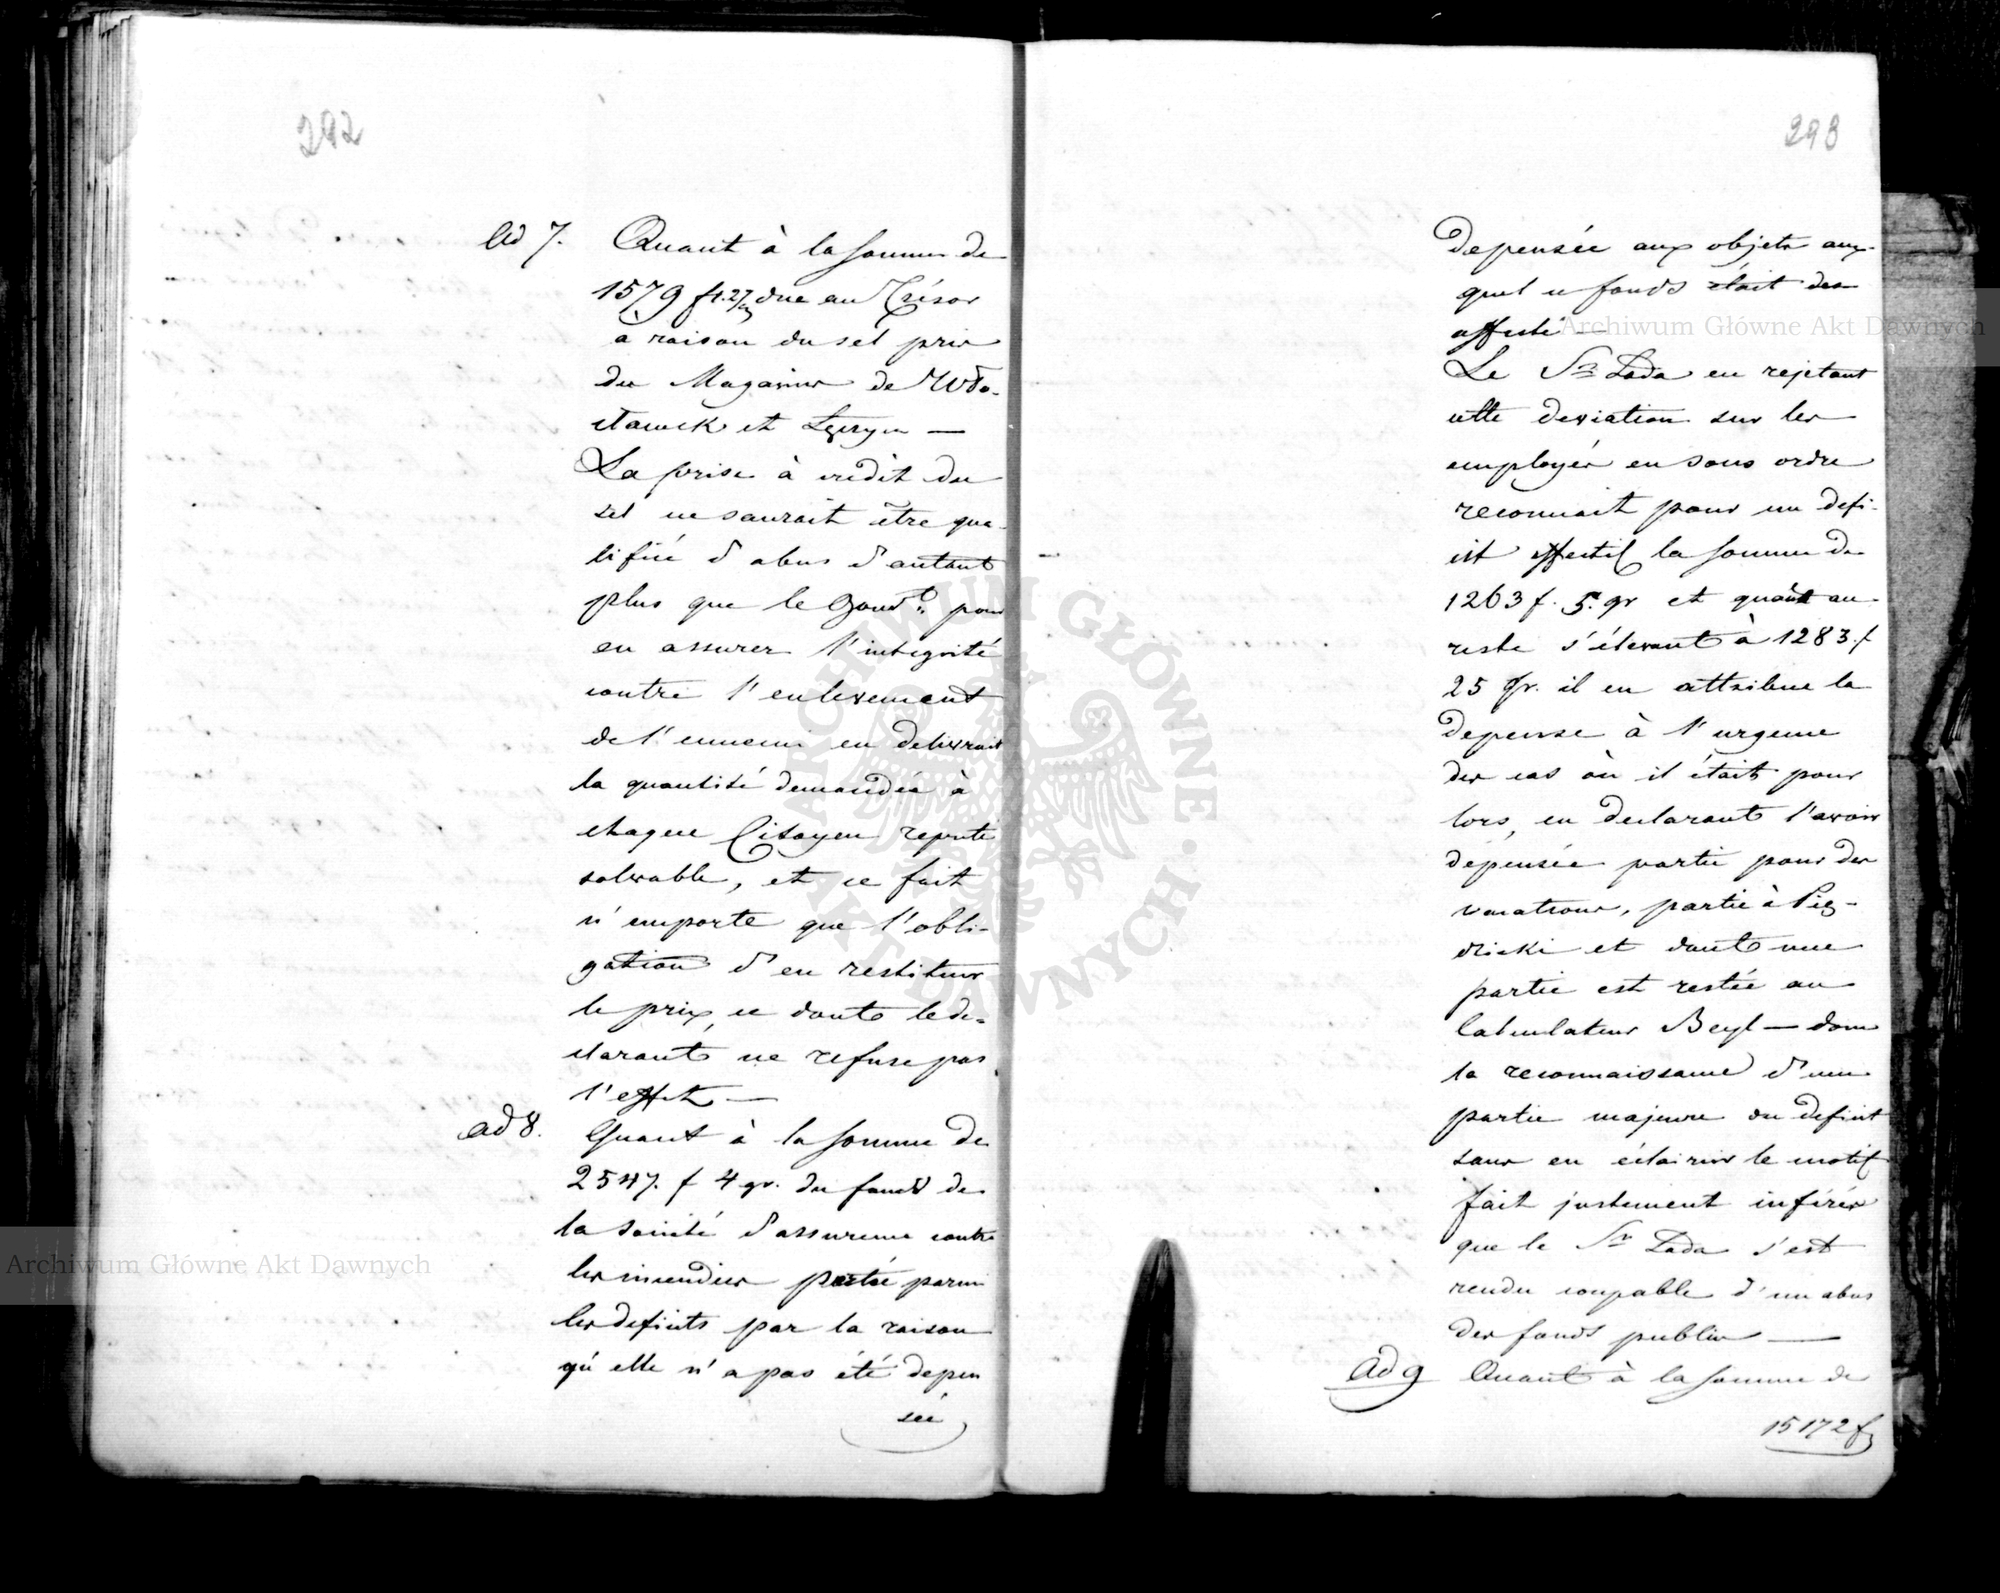 292
Ad 7. Quant à la somme de
1579 f. 27/ due au Trésor
a raison du sel pris
du Magasins de Wło-
cławek et
La prise à credit du
sel ne saurait être qua-
lifiée d'abus d'autant
plus que le Gouvt. pour
en assurer l'integrité
contre l'enlevement
de l'ennemi en delivrait
la quantité demandée à
chaque Citoyen reputé
solvable, et ce fait
n'emporte que l'obli-
gation d'en restituer
le prix, ce dont le de-
clarant ne refuse pas
l'effet —
ad 8. Quant à la somme de
2547. f 4 gr. du fonds de
la société d'assurence contre
les incendies portée parmi
les deficits par la raison
qu'elle n'a pas été depen
sée
293
depensée aux objets aux-
quel ce fonds était des
affecté —
Le Sr. Lada en rejetant
cette deviation sur les
employés en sous ordre
reconnait pour un defi-
cit effectif la somme de
1263 f. 5. gr et quant au
reste s'élevant à 1283. f
25 gr. il en attribue la
depense à l'urgence
des cas où il était pour
lors, en declarant l'avoir
dépensée partie pour des
vacations, partie à Pig-
dzicki et dont une
partie est restée au
Calculateur Beyl — donc
la reconnaissance d'une
partie majeure du deficit
sans en éclaircir le motif
fait justement inférer
que le Sr Lada s'est
rendu coupable d'un abus
des fonds publics —
Ad 9 Quant à la somme de
15172 f
Archiwum Główne Akt Dawnych
Archiwum Główne Akt Dawnych
ARCHIWUM GŁÓWNE AKT DAWNYCH